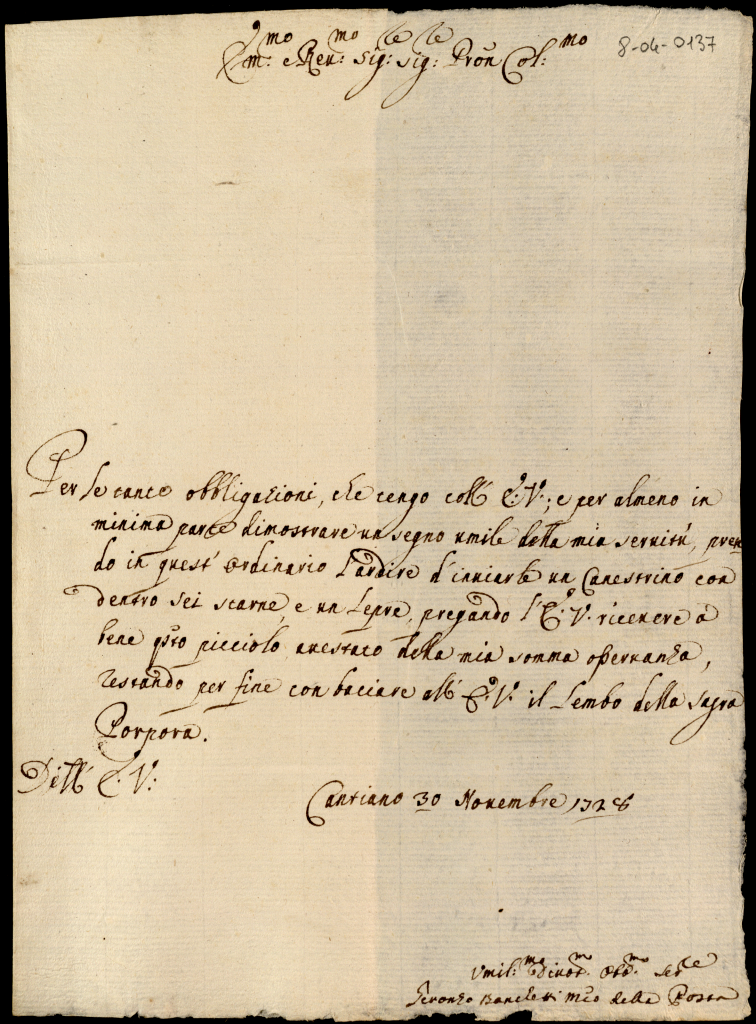 8-04-0137
Em:mo e Rev:mo Sig:re Sig:re Pron Col:mo
Per le tante obbligazioni, che tengo coll' E: V:; e per almeno in
minima parte dimostrare un segno umile della mia servitù, pren
do in quest' ordinario l'ardire d'inviarle un Canestrino con
dentro sei starne, e un Lepre, pregando l' E: V: ricevere à
bene qsto picciolo attestato della mia somma osservanza,
restando per fine con baciare all' E: V: il Lembo della Sagra
Porpora.
Dell' E: V:
Cantiano 30 Novembre 1728
Umil:mo Divot:mo Obb:mo Ser:re
Banchetti Mro della Posta